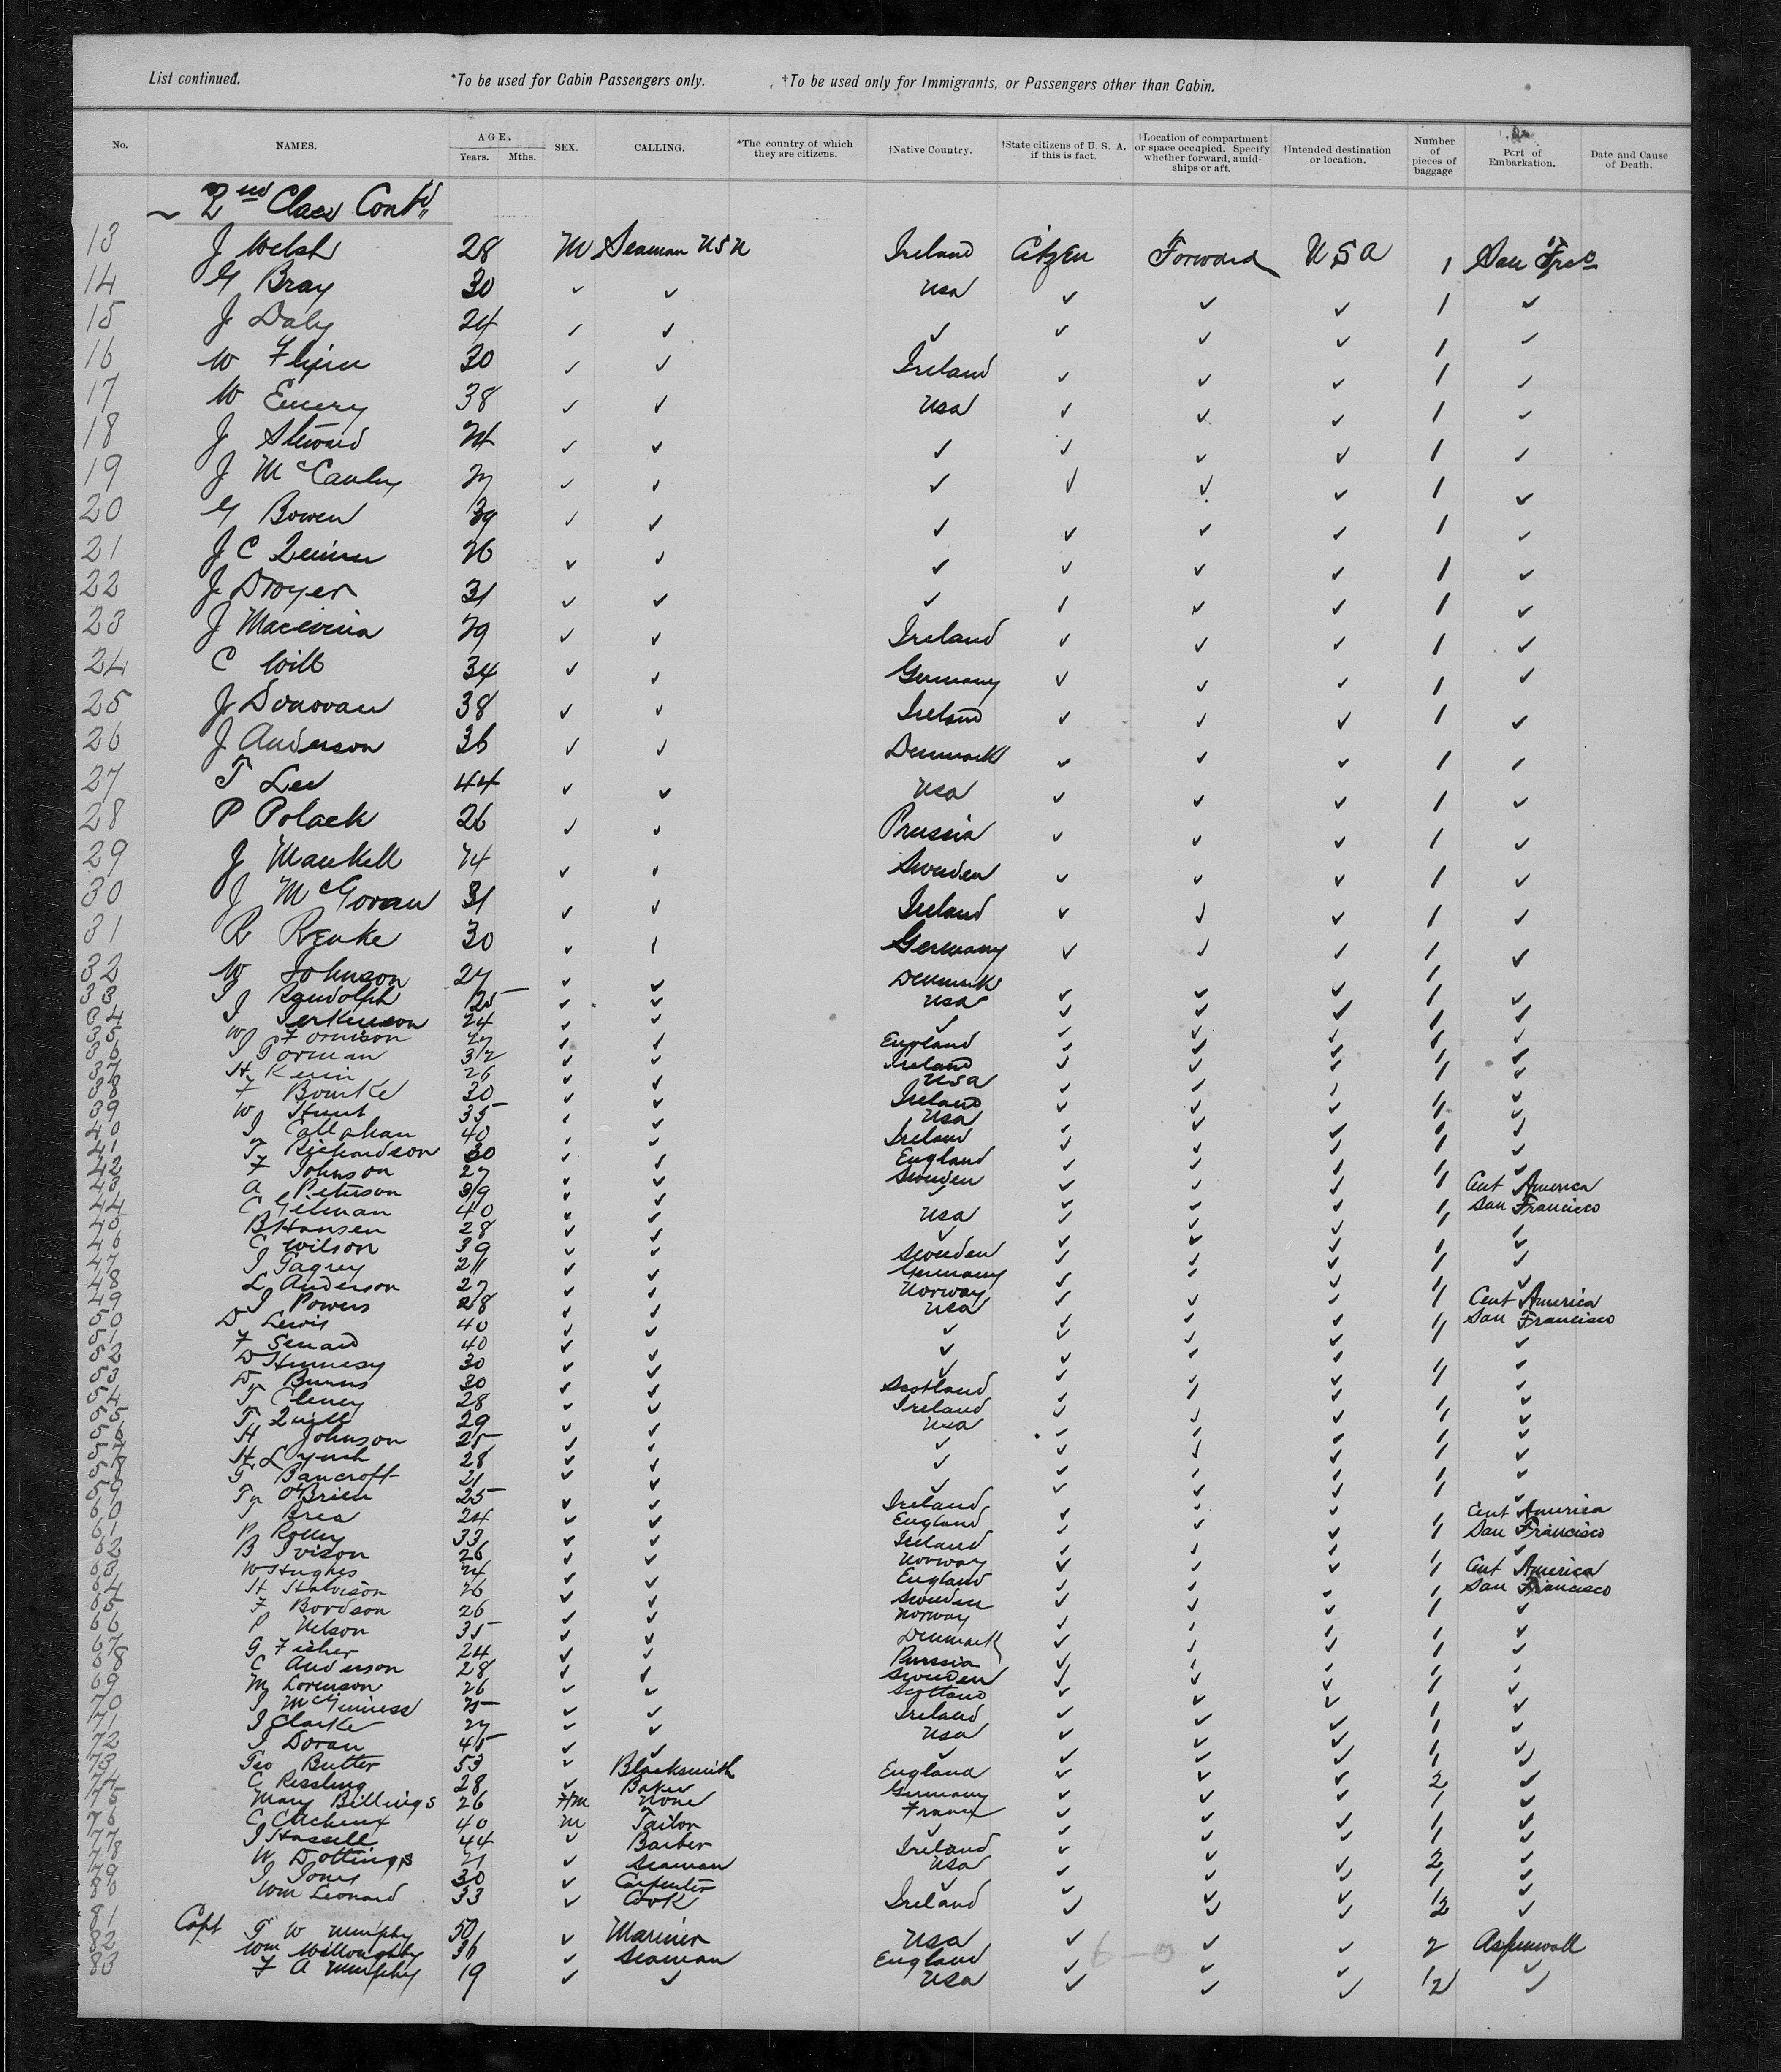 List continued. *To be used for Cabin Passengers only. †To be used only for Immigrants, or Passengers other than Cabin.
No. NAMES. AGE. Years. Mths. SEX. CALLING. *The country of which they are citizens. †Native Country. †State citizens of U. S. A. if this is fact. †Location of compartment or space occupied. Specify whether forward, amidships or aft. †Intended destination or location. Number of pieces of baggage Port of Embarkation. Date and Cause of Death.
2nd Class Contd
13 J Welsh 28 M Seaman USN Ireland Citzen Forward USA 1 San Frco
14 G Bray 30 ✓ ✓ Usa ✓ ✓ ✓ 1 ✓
15 J Daly 24 ✓ ✓ ✓ ✓ ✓ ✓ 1 ✓
16 W Flynn 30 ✓ ✓ Ireland ✓ ✓ ✓ 1 ✓
17 W Emery 38 ✓ ✓ Usa ✓ ✓ ✓ 1 ✓
18 J Steward 24 ✓ ✓ ✓ ✓ ✓ ✓ 1 ✓
19 J McCauley 27 ✓ ✓ ✓ ✓ ✓ ✓ 1 ✓
20 G Bowen 39 ✓ ✓ ✓ ✓ ✓ ✓ 1 ✓
21 J C Quinn 26 ✓ ✓ ✓ ✓ ✓ ✓ 1 ✓
22 J Dwyer 31 ✓ ✓ ✓ ✓ ✓ ✓ 1 ✓
23 J 29 ✓ ✓ Ireland ✓ ✓ ✓ 1 ✓
24 C Will 34 ✓ ✓ Germany ✓ ✓ ✓ 1 ✓
25 J Donovan 38 ✓ ✓ Ireland ✓ ✓ ✓ 1 ✓
26 J Anderson 36 ✓ ✓ Denmark ✓ ✓ ✓ 1 ✓
27 T Lee 44 ✓ ✓ Usa ✓ ✓ ✓ 1 ✓
28 P Polack 26 ✓ ✓ Prussia ✓ ✓ ✓ 1 ✓
29 J Mankell 24 ✓ ✓ Sweden ✓ ✓ ✓ 1 ✓
30 J McGovan 31 ✓ ✓ Ireland ✓ ✓ ✓ 1 ✓
31 R Renke 30 ✓ ✓ Germany ✓ ✓ ✓ 1 ✓
32 W Johnson 27 ✓ ✓ Denmark ✓ ✓ ✓ 1 ✓
33 J Randolph 25 ✓ ✓ Usa ✓ ✓ ✓ 1 ✓
34 J Jerkinson 24 ✓ ✓ ✓ ✓ ✓ ✓ 1 ✓
35 W Fornison 27 ✓ ✓ England ✓ ✓ ✓ 1 ✓
36 J Gorman 32 ✓ ✓ Ireland ✓ ✓ ✓ 1 ✓
37 H Kerin 26 ✓ ✓ Usa ✓ ✓ ✓ 1 ✓
38 F Bourke 30 ✓ ✓ Ireland ✓ ✓ ✓ 1 ✓
39 W Hunt 35 ✓ ✓ Usa ✓ ✓ ✓ 1 ✓
40 J Callahan 40 ✓ ✓ Ireland ✓ ✓ ✓ 1 ✓
41 T Richardson 30 ✓ ✓ England ✓ ✓ ✓ 1 ✓
42 F Johnson 27 ✓ ✓ Sweden ✓ ✓ ✓ 1 Cent America
43 A Peterson 39 ✓ ✓ ✓ ✓ ✓ ✓ 1 San Francisco
44 C Gilman 40 ✓ ✓ Usa ✓ ✓ ✓ 1 ✓
45 B Hansen 28 ✓ ✓ ✓ ✓ ✓ ✓ 1 ✓
46 C Wilson 39 ✓ ✓ Sweden ✓ ✓ ✓ 1 ✓
47 J 21 ✓ ✓ Germany ✓ ✓ ✓ 1 ✓
48 L Anderson 27 ✓ ✓ Norway ✓ ✓ ✓ 1 Cent America
49 J Powers 28 ✓ ✓ Usa ✓ ✓ ✓ 1 San Francisco
50 D Lewis 40 ✓ ✓ ✓ ✓ ✓ ✓ 1 ✓
51 F Senard 40 ✓ ✓ ✓ ✓ ✓ ✓ 1 ✓
52 D Hennesy 30 ✓ ✓ ✓ ✓ ✓ ✓ 1 ✓
53 D Burns 30 ✓ ✓ Scotland ✓ ✓ ✓ 1 ✓
54 T Cleney 28 ✓ ✓ Ireland ✓ ✓ ✓ 1 ✓
55 T Quill 29 ✓ ✓ Usa ✓ ✓ ✓ 1 ✓
56 H Johnson 25 ✓ ✓ ✓ ✓ ✓ ✓ 1 ✓
57 H Lynch 28 ✓ ✓ ✓ ✓ ✓ ✓ 1 ✓
58 G Bancroft 21 ✓ ✓ ✓ ✓ ✓ ✓ 1 ✓
59 T OBrien 25 ✓ ✓ Ireland ✓ ✓ ✓ 1 Cent America
60 J Brea 24 ✓ ✓ England ✓ ✓ ✓ 1 San Francisco
61 P Rolley 33 ✓ ✓ Ireland ✓ ✓ ✓ 1 ✓
62 B Ivison 26 ✓ ✓ Norway ✓ ✓ ✓ 1 Cent America
63 W Hughes 24 ✓ ✓ England ✓ ✓ ✓ 1 San Francisco
64 H Halvison 26 ✓ ✓ Sweden ✓ ✓ ✓ 1 ✓
65 F Bordson 26 ✓ ✓ Norway ✓ ✓ ✓ 1 ✓
66 P Nelson 35 ✓ ✓ Denmark ✓ ✓ ✓ 1 ✓
67 G Fisher 24 ✓ ✓ Russia ✓ ✓ ✓ 1 ✓
68 C Anderson 28 ✓ ✓ Sweden ✓ ✓ ✓ 1 ✓
69 M Lorenson 26 ✓ ✓ Scotland ✓ ✓ ✓ 1 ✓
70 J McGuiness 25 ✓ ✓ Ireland ✓ ✓ ✓ 1 ✓
71 J Clarke 27 ✓ ✓ Usa ✓ ✓ ✓ 1 ✓
72 J Doran 45 ✓ ✓ ✓ ✓ ✓ ✓ 1 ✓
73 Geo Butter 53 ✓ Blacksmith England ✓ ✓ ✓ 2 ✓
74 C Rissling 28 ✓ Baker Germany ✓ ✓ ✓ 1 ✓
75 Mary Billings 26 Fm None France ✓ ✓ ✓ 1 ✓
76 C 40 m Tailor ✓ ✓ ✓ ✓ 1 ✓
77 J Hassell 44 ✓ Barber Ireland ✓ ✓ ✓ 2 ✓
78 W Dottings 21 ✓ Seaman Usa ✓ ✓ ✓ 1 ✓
79 J Jones 30 ✓ Carpenter ✓ ✓ ✓ ✓ 1 ✓
80 Wm Leonard 33 ✓ Cook Ireland ✓ ✓ ✓ 2 ✓
81 Capt G W Murphy 50 ✓ Mariner Usa ✓ ✓ ✓ 2 Aspinwall
82 Wm Willoughby 36 ✓ Seaman England ✓ ✓ ✓ 1 ✓
83 F A Murphy 19 ✓ ✓ Usa ✓ ✓ ✓ 2 ✓